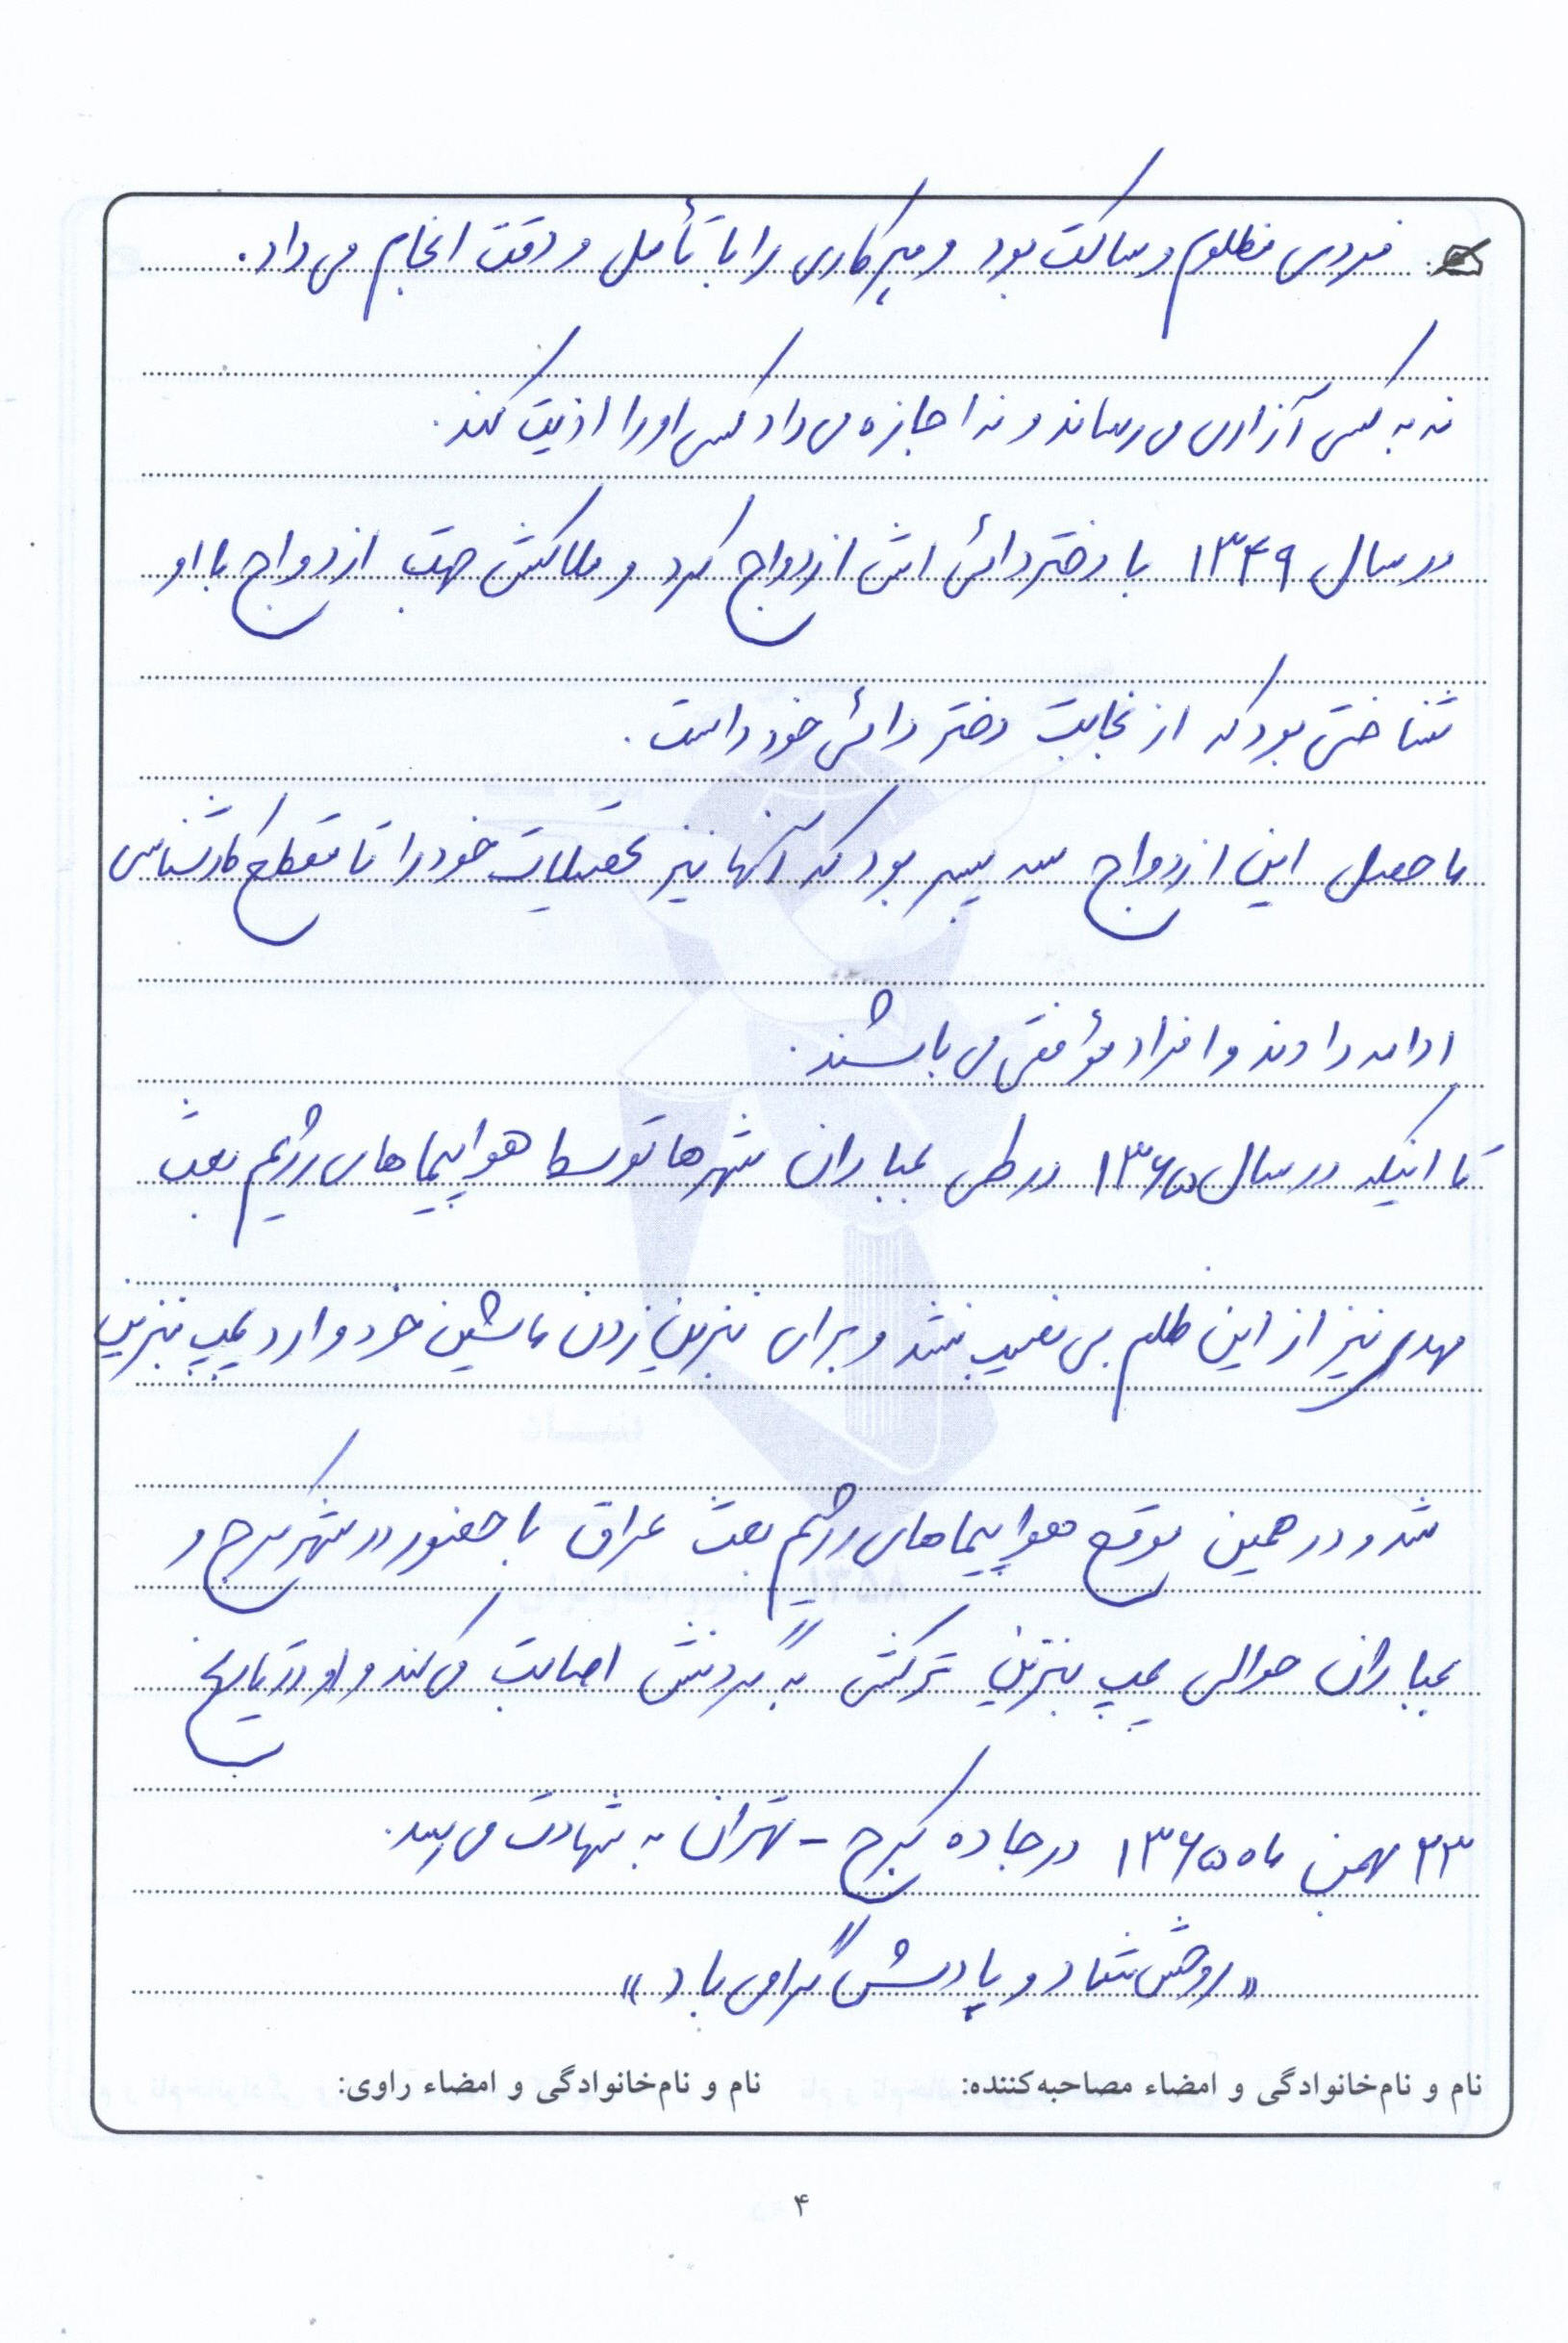 فردی مظلوم و ساکت بود و هر کاری را با تأمل و دقت انجام می داد.
نه به کسی آزاری می رساند و نه اجازه می داد کسی او را اذیت کند.
در سال ۱۳۴۹ با دختر دائی اش ازدواج کرد و ملاکش جهت ازدواج با او
شناختی بود که از نجابت دختر دائی خود داشت.
ماحصل این ازدواج سه پسر بود که آنها نیز تحصیلات خود را تا مقطع کارشناسی
ادامه دادند و افراد مؤفقی می باشند.
تا اینکه در سال ۱۳۶۵ در طی بمباران شهرها توسط هواپیماهای رژیم بعث
مهدی نیز از این ظلم بی نصیب نشد و برای بنزین زدن ماشین خود وارد پمپ بنزین
شد و در همین موقع هواپیماهای رژیم بعث عراق با حضور در شهر کرج و
بمباران حوالی پمپ بنزین ترکش به گردنش اصابت می کند و او در تاریخ
۲۳ بهمن ماه ۱۳۶۵ در جاده کرج - تهران به شهادت می رسد.
«روحش شاد و یادش گرامی باد»
نام و نام‌خانوادگی و امضاء مصاحبه‌کننده: نام و نام‌خانوادگی و امضاء راوی:
۴